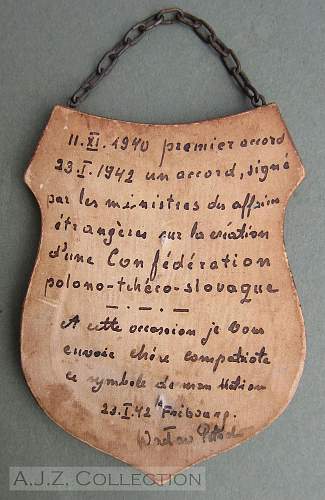 11.XI.1940 premier accord
23.I.1942 un accord, signé
par les ministres des affaires
étrangères sur la création
d'une Confédération
polono-tchéco-slovaque
A cette occasion je Vous
envoie chère compatriote
ce symbole de mon
23.I.42 Fribourg.
Wacław
A.J.Z. COLLECTION